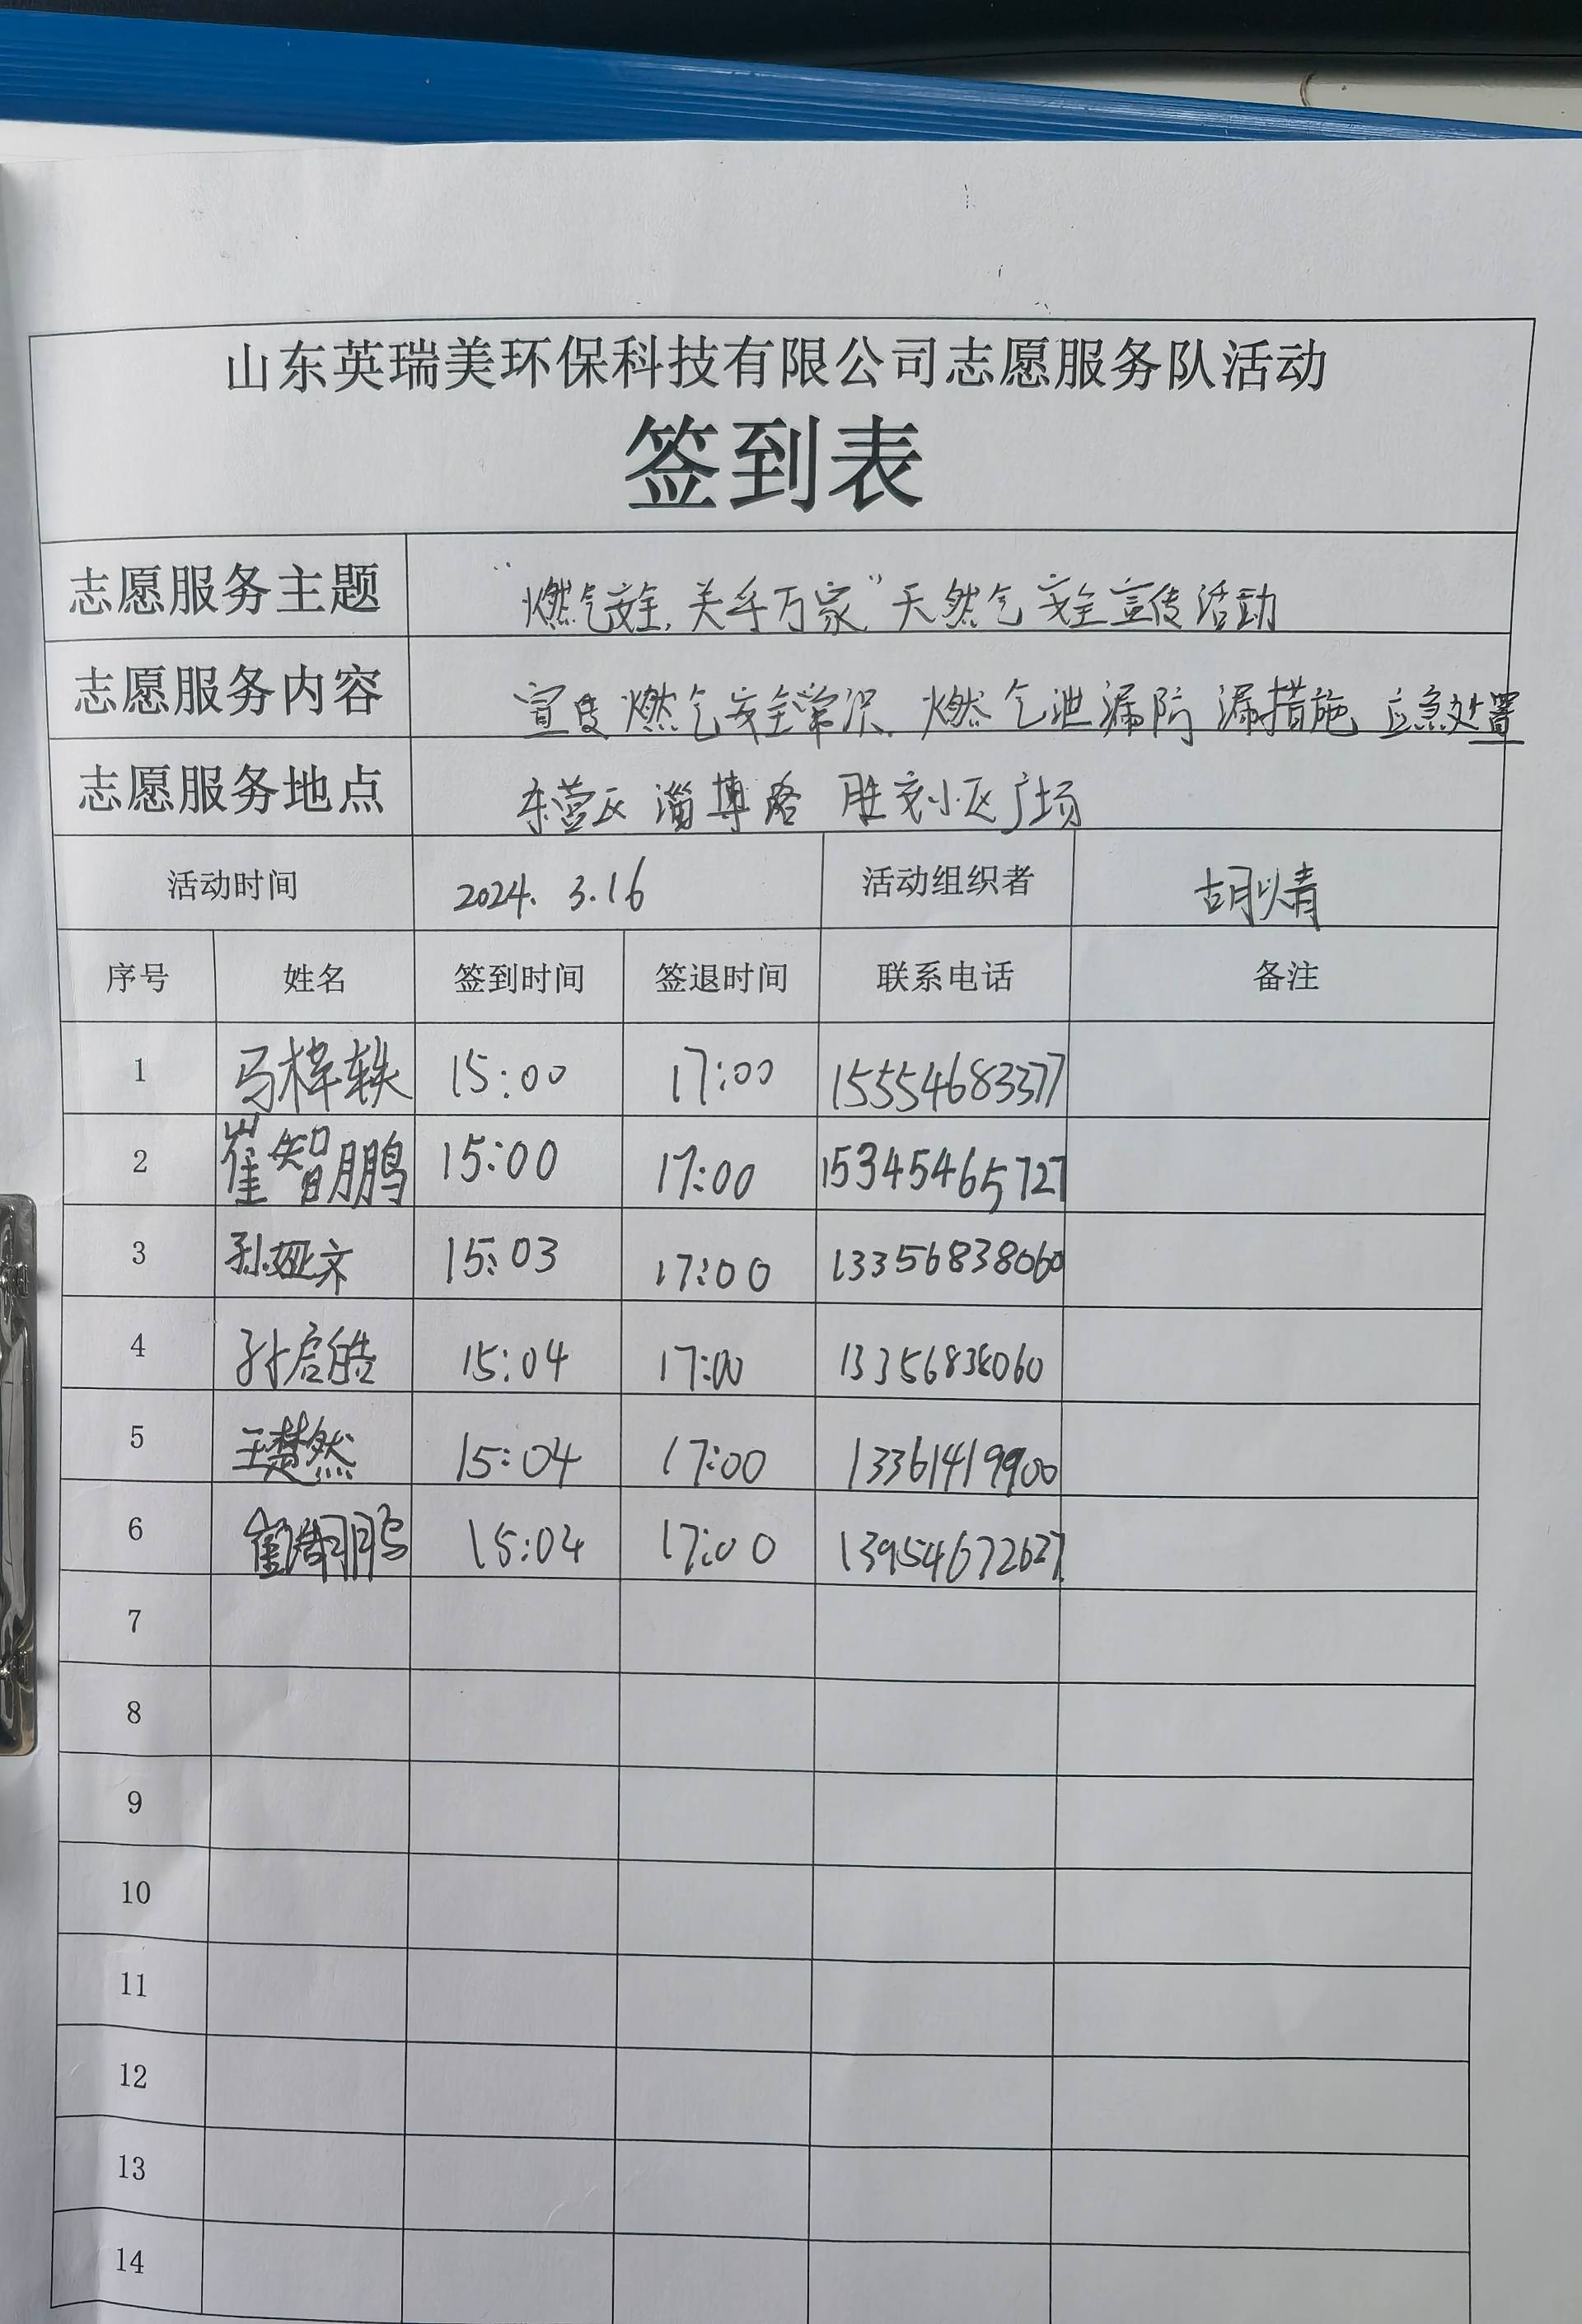 山东英瑞美环保科技有限公司志愿服务队活动
签到表
志愿服务主题 “燃气安全,关乎万家”天然气安全宣传活动
志愿服务内容 宣传燃气安全常识.燃气泄漏防漏措施 应急处置
志愿服务地点 东营区 淄博路 胜利小区广场
活动时间 2024.3.16 活动组织者 胡以青
序号 姓名 签到时间 签退时间 联系电话 备注
1 马梓轶 15:00 17:00 15554683377
2 崔智鹏 15:00 17:00 15345465727
3 孙娅文 15:03 17:00 13356838060
4 孙启皓 15:04 17:00 13356838060
5 王楚然 15:04 17:00 13361419900
6 15:04 17:00 13954672627
7
8
9
10
11
12
13
14